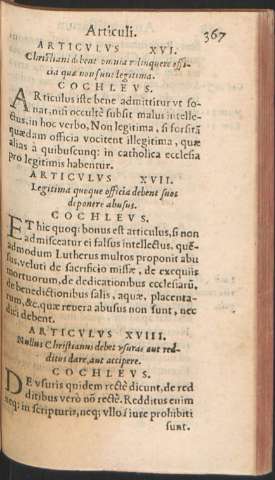 Articuli. 367
ARTICVLVS XVI.
Christiani debent omnia relinquere offi-
cia quæ non sunt legitima.
COCHLEVS.
ARticulus iste bene admittitur vt so-
nat, nisi occultè subsit malus intelle-
ctus, in hoc verbo, Non legitima, si forsitã
quædam officia vocitent illegitima, quæ
alias à quibuscunq; in catholica ecclesia
pro legitimis habentur.
ARTICVLVS XVII.
Legitima quoque officia debent suos
deponere abusus.
COCHLEVS.
ET hic quoq; bonus est articulus, si non
admisceatur ei falsus intellectus, quẽ-
admodum Lutherus multos proponit abu
sus, veluti de sacrificio missæ, de exequiis
mortuorum, de dedicationibus ecclesiarũ,
de benedictionibus salis, aquæ, placenta-
rum, &c. quæ reuera abusus non sunt, nec
dici debent.
ARTICVLVS XVIII.
Nullus Christianus debet vsuras aut red-
ditus dare, aut accipere.
COCHLEVS.
DE vsuris quidem rectè dicunt, de red
ditibus verò nõ rectè. Redditus enim
neq; in scripturis, neq; vllos iure prohibiti
sunt.